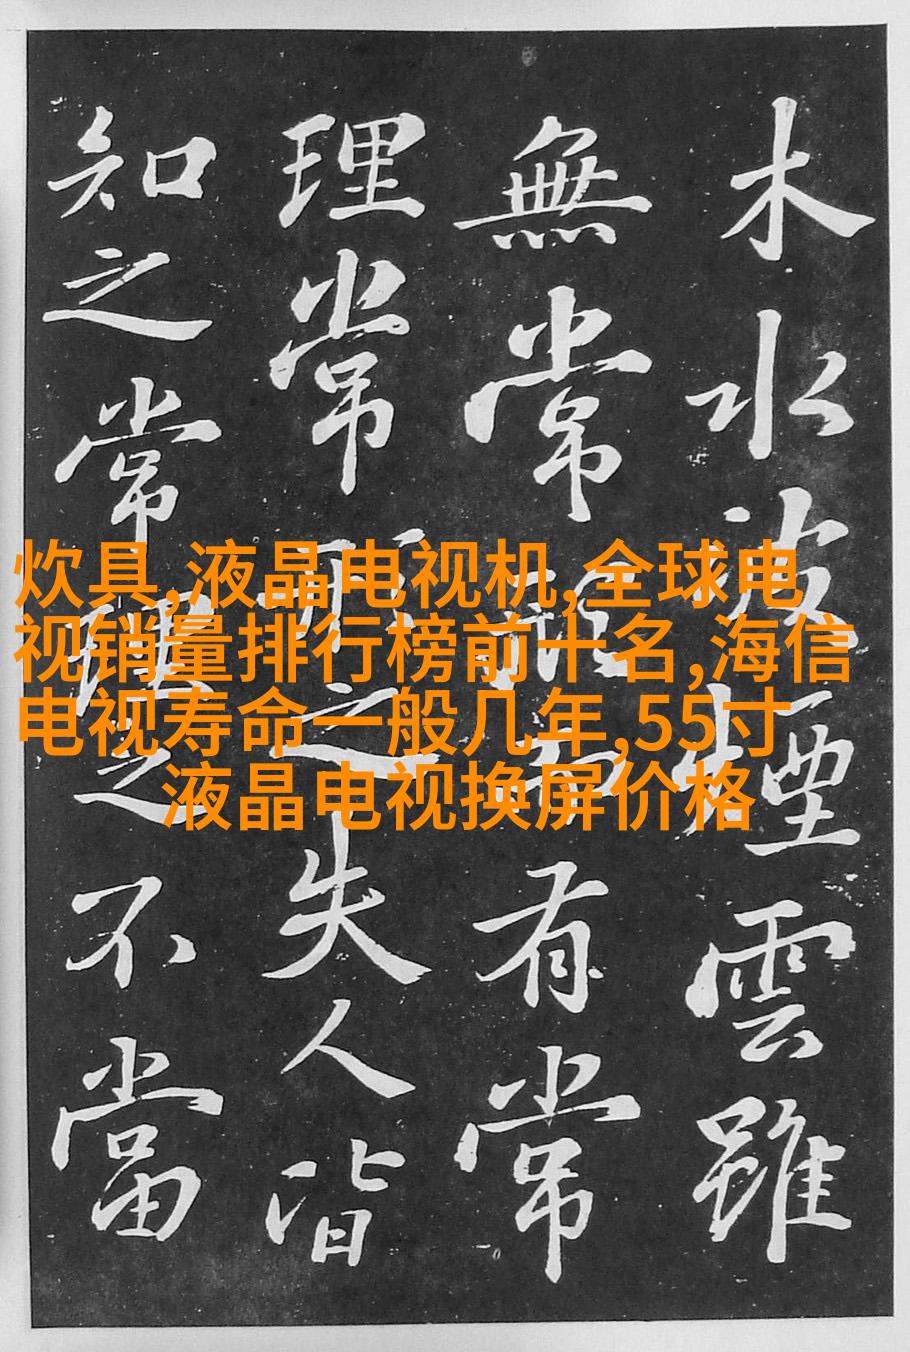 木水波煙雲雖
無常有常
理常之失人皆
知之常理之不當
炊具,液晶电视机,全球电
视销量排行榜前十名,海信
电视寿命一般几年,55寸
液晶电视换屏价格